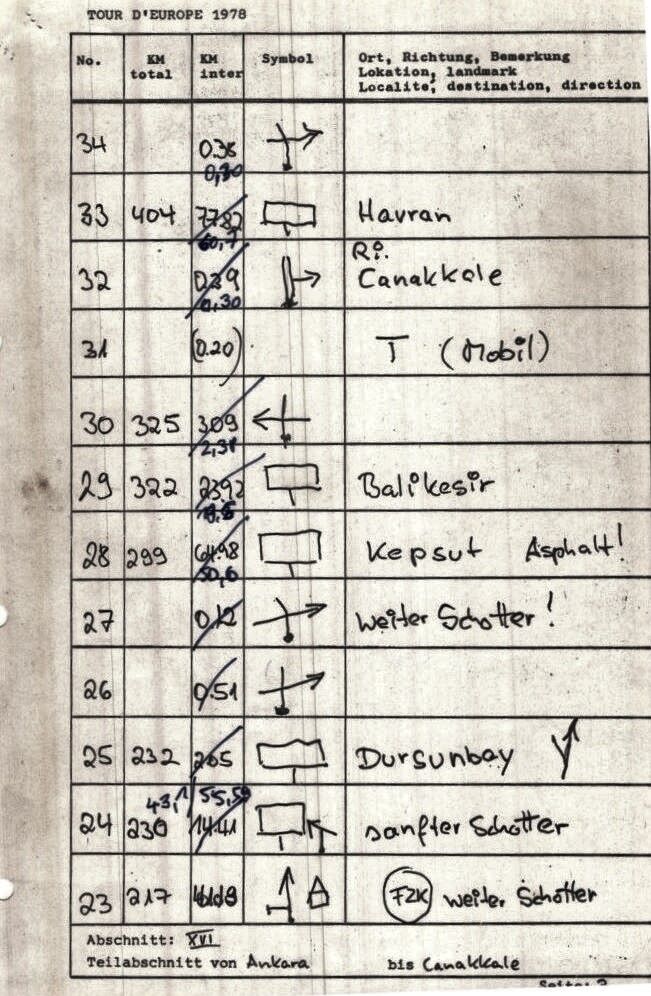 TOUR D'EUROPE 1978
No. KM total KM inter Symbol Ort, Richtung, Bemerkung
Lokation, landmark
Localite, destination, direction
34 0.38
0,30
33 404 77.87 Havran
60,7
32 0.39 Ri. Canakkale
0,30
31 (0.20) T (Mobil)
30 325 3.09
2,31
29 322 23.92 Balikesir
28 299 64.98 Kepsut Asphalt!
50,6
27 0.12 weiter Schotter!
26 0.51
25 232 2.65 Dursunbey
43,1 55,59
24 230 14.41 sanfter Schotter
23 217 FZK weiter Schotter
Abschnitt: XVI
Teilabschnitt von Ankara bis Canakkale